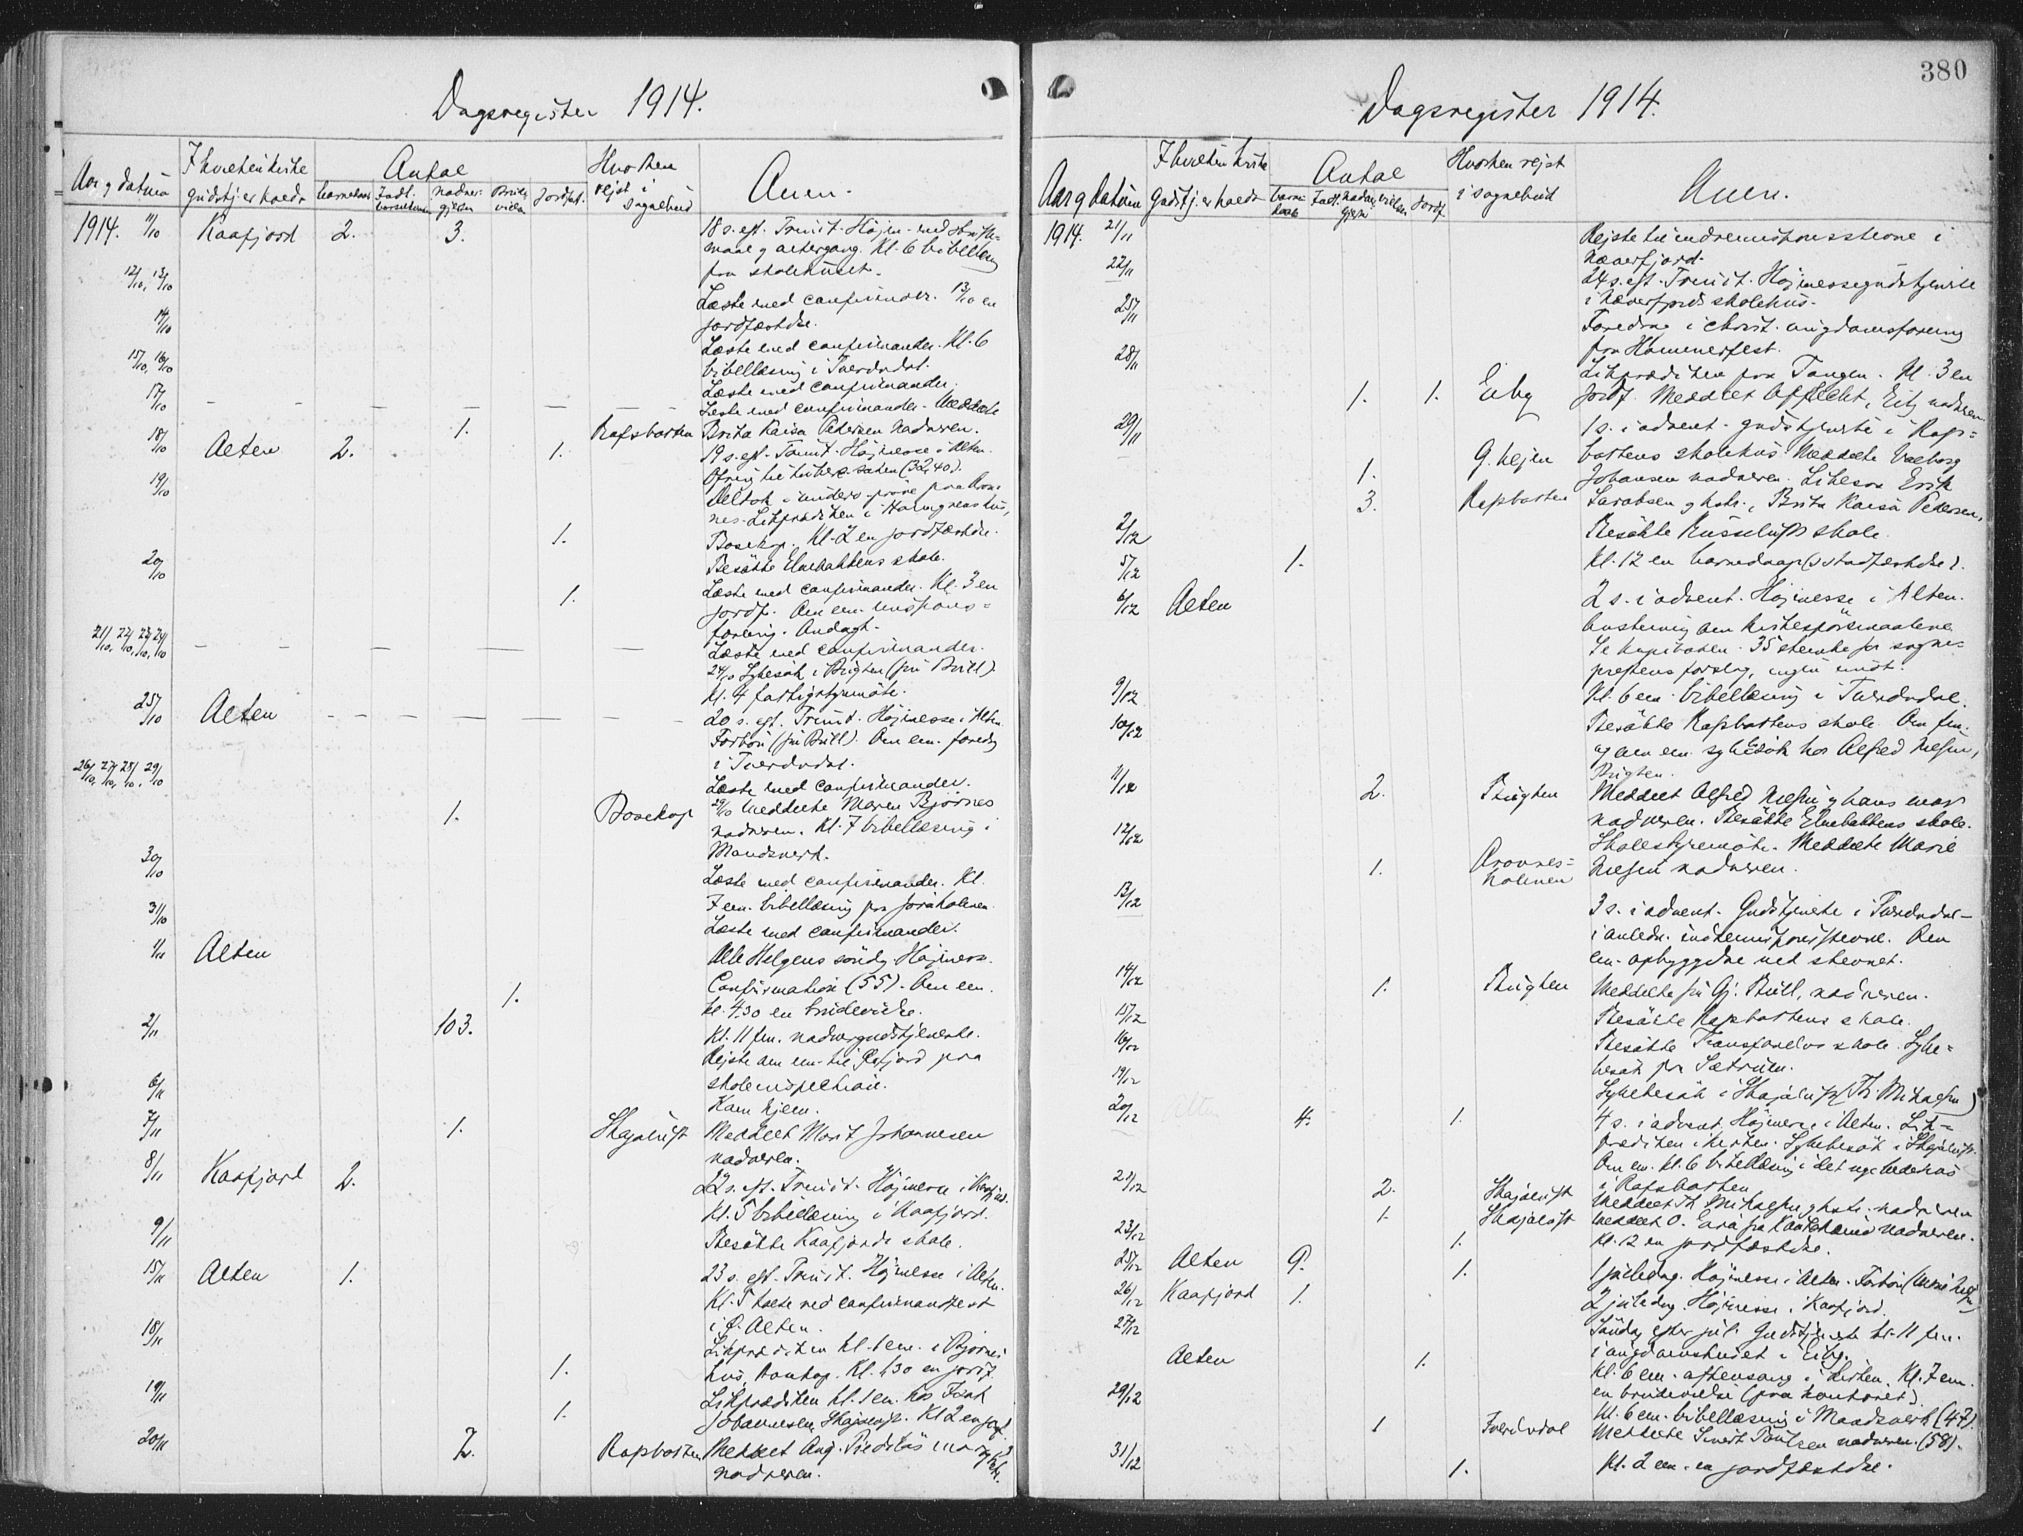 Dagsregister 1914.
Aar og datum
I hvilken kirke
gudstj. er holdt
Antal
barnedaab
nadver-
gjester
Brude
vielser
Jordf.
Hvorhen
rejst i
sognebud
Anm.
1914. 11/10 Kaafjord 2. 3. 18 s. eft. Trinit. Højm. med skrifte-
maal og altergang. Kl. 6 bibellæsning
paa skolehuset.
12/10, 13/10 Læste med confirmander. 13/10 en
jordfæstelse.
14/10 Læste med confirmander. Kl. 6
bibellæsning i Tverelvdal.
15/10, 16/10 Læste med confirmander.
17/10 Læste med confirmander. Meddelte
1. Rafsbotten Brita Kaisa Pedersen nadveren.
18/10 Alten 2. 1. 19 s. eft. Trinit. Højmesse i Alten.
(32,40).
19/10
Likprædiken i
1. Bosekop. Kl. 2 en jordfæstelse.
20/10 Besøkte Elvebakkens skole.
1. Læste med confirmander. Kl. 3 en
jordf. Om em. missions-
forening. Andagt.
21/10, 22/10, 23/10, 24/10 Læste med confirmander.
24/10 Sykebesøk i Bugten (fru Bull).
Kl. 4 fattigstyremøte.
25/10 Alten 20 s. eft. Trinit. Højmesse i Alten.
Forbøn (fru Bull). Om em. foredrag
i Tverelvdal.
26/10, 27/10, 28/10, 29/10 Læste med confirmander.
1. Bosekop 29/10 Meddelte Maren Bjørnes
nadveren. Kl. 7 bibellæsning i
Mandsverk.
30/10 Læste med confirmander. Kl.
7 em. bibellæsning paa Joraholmen.
31/10 Læste med confirmander.
1/11 Alten Alle Helgens søndag. Højmesse.
1. Confirmation (55). Om em.
kl. 4.30 en brudevielse.
2/11 103. Kl. 11 fm. nadvergudstjeneste.
Rejste om em. til Refjord paa
skoleinspektion.
6/11 Kom hjem.
7/11 1. Skajaluft Meddelt Marit Johannesen
nadveren.
8/11 Kaafjord 2. 22 s. eft. Trinit. Højmesse i Kaafjord.
Kl. 5 bibellæsning i Kaafjord.
9/11 Besøkte Kaafjords skole.
15/11 Alten 1. 23 s. eft. Trinit. Højmesse i Alten.
Kl. 5 tale ved confirmandfest
i Ø. Alten.
18/11 Likprædiken kl. 1 em. i Bjørnes
1. hus, Bosekop. Kl. 1.30 en jordf.
19/11 Likprædiken kl. 1 em. hos
1. Johannesen, Skajaluft. Kl. 2 en jordf.
20/11 2. Rafsbotten Meddelt Aug.
nadveren.
380
Dagsregister 1914.
Aar og datum
I hvilken kirke
gudstj. er holdt
Antal
barne-
daab
nadver
gjester
vielser
Jordf.
Hvorhen rejst
i sognebud
Anm.
1914. 21/11 Rejste til indremissionsstevne i
Leverfjord.
22/11 24 s. eft. Trinit. Højmessegudstjeneste
i Leverfjords skolehus.
25/11 Foredrag i christ. ungdomsforening
paa Hammerfest.
28/11 Likprædiken paa Tangen. Kl. 3 en
1. 1. Eiby jordf. Meddelt Eiby nadveren
29/11 1 s. i advent. gudstjeneste i Rafs-
1. G. hejen bottens skolehus. Meddelte Valborg
Johansen nadveren. Likesom Erik
3. Rafsbotten Larsen og hstr., Brita Kaisa Pedersen.
2/12 Besøkte Russeluft skole.
5/12 1. Kl. 12 en barnedaap (stadfæstelse).
6/12 Alten 2 s. i advent. Højmesse i Alten.
Avstemning om kirkespørsmaalene
35 stemte for sogne-
prestens forslag, ingen imot.
9/12 Kl. 6 em. bibellæsning i Tverelvdal.
10/12 Besøkte Rafsbottens skole. Om fm.
og om em. sykebesøk hos Alfred Nilsen,
Bugten.
11/12 2. Bugten Meddelt Alfred Nilsen og hans mor
nadveren. Besøkte Elvebakkens skole.
12/12 Skolestyremøte. Meddelte Marie
1. Aronnes-
holmen Nilsen nadveren.
13/12 3 s. i advent. Gudstjeneste i Tverelvdal
i anledn. indremissionsstevne. Om
em. opbyggelse ved stevnet.
14/12 1. Bugten Meddelte fru Gj. Bull, nadveren.
15/12 Besøkte Rafsbottens skole.
16/12 Besøkte Transfarelvs skole. Syke-
besøk paa Sætrum.
19/12 Sykebesøk i Skajaluft (Th. Mikkelsen)
20/12 Alt 4. 1. 4 s. i advent. Højmesse i Alten. Lik-
prædiken i kirken. Sykebesøk i Skajaluft.
Om em. kl. 6 bibellæsning i det nye bedehus
i Rafsbotten
21/12 2. Skajaluft Meddelt Th. Mikkelsen og hstr. nadveren
1. Skajaluft Meddelt O. fra Kautokeino nadveren.
23/12 1. Kl. 12 en jordfæstelse.
25/12 Alten 9. 1. 1 juledag. Højmesse i Alten. Forbøn
26/12 Kaafjord 1. 2 juledag. Højmesse i Kaafjord.
27/12 Søndag efter jul. Gudstjeneste kl. 11 fm.
i ungdomshuset i Eiby.
Alten 1. Kl. 6 em. aftensang i kirken. Kl. 7 em.
en brudevielse (paa kontoret).
29/12 Kl. 6 em. bibellæsning i Mandsverk (47).
1 Tverelvdal Meddelte Sivert Poulsen nadveren. (58).
31/12 1. Kl. 2 em. en jordfæstelse.